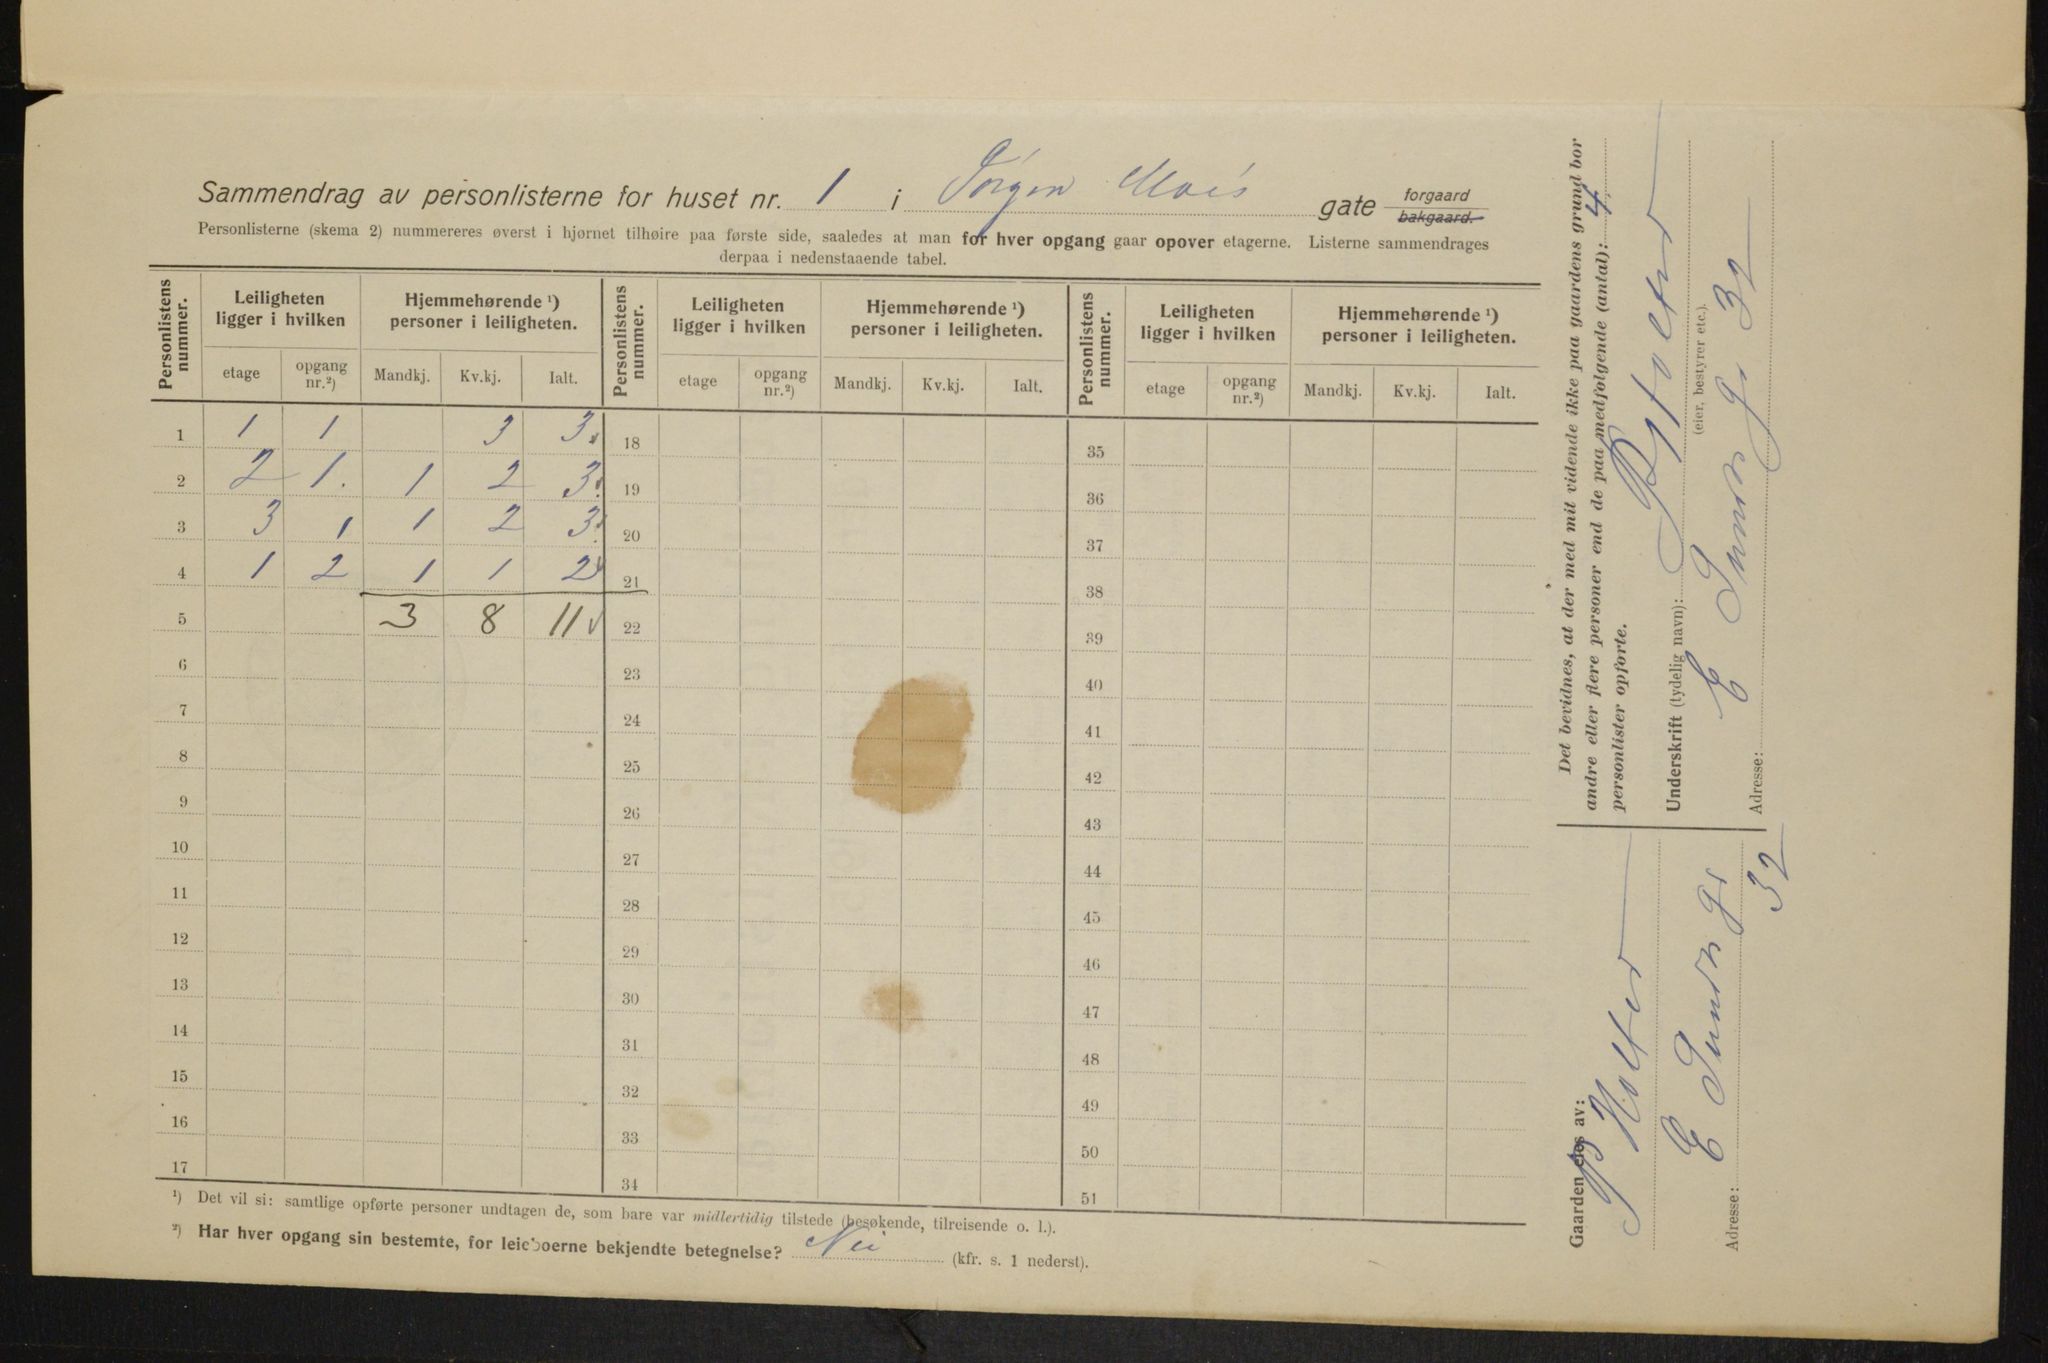 Sammendrag av personlisterne for huset nr. 1 i Jörgen Moes gate forgaard
bakgaard.
Personlisterne (skema 2) nummereres øverst i hjørnet tilhøire paa første side, saaledes at man for hver opgang gaar opover etagerne. Listerne sammendrages
derpaa i nedenstaaende tabel.
Personlistens nummer. Leiligheten ligger i hvilken Hjemmehørende ¹) personer i leiligheten. Personlistens nummer. Leiligheten ligger i hvilken Hjemmehørende ¹) personer i leiligheten. Personlistens nummer. Leiligheten ligger i hvilken Hjemmehørende ¹) personer i leiligheten.
etage opgang nr.²) Mandkj. Kv.kj. Ialt. etage opgang nr.²) Mandkj. Kv.kj. Ialt. etage opgang nr.²) Mandkj. Kv.kj. Ialt.
1 1 1 3 3 18 35
2 2 1. 1 2 3. 19 36
3 3 1 1 2 3. 20 37
4 1 2 1 1 2 21 38
5 3 8 11 22 39
6 23 40
7 24 41
8 25 42
9 26 43
10 27 44
11 28 45
12 29 46
13 30 47
14 31 48
15 32 49
16 33 50
17 34 51
¹) Det vil si: samtlige opførte personer undtagen de, som bare var midlertidig tilstede (besøkende, tilreisende o. l.).
²) Har hver opgang sin bestemte, for leieboerne bekjendte betegnelse? Nei (kfr. s. 1 nederst).
Det bevidnes, at der med mit vidende ikke paa gaardens grund bor
andre eller flere personer end de paa medfølgende (antal): 4
personlister opførte.
Underskrift (tydelig navn):
(eier, bestyrer etc.).
Adresse: E Sunds g. 32
Gaarden eies av:
P Holter
Adresse: E Sunds gt
32